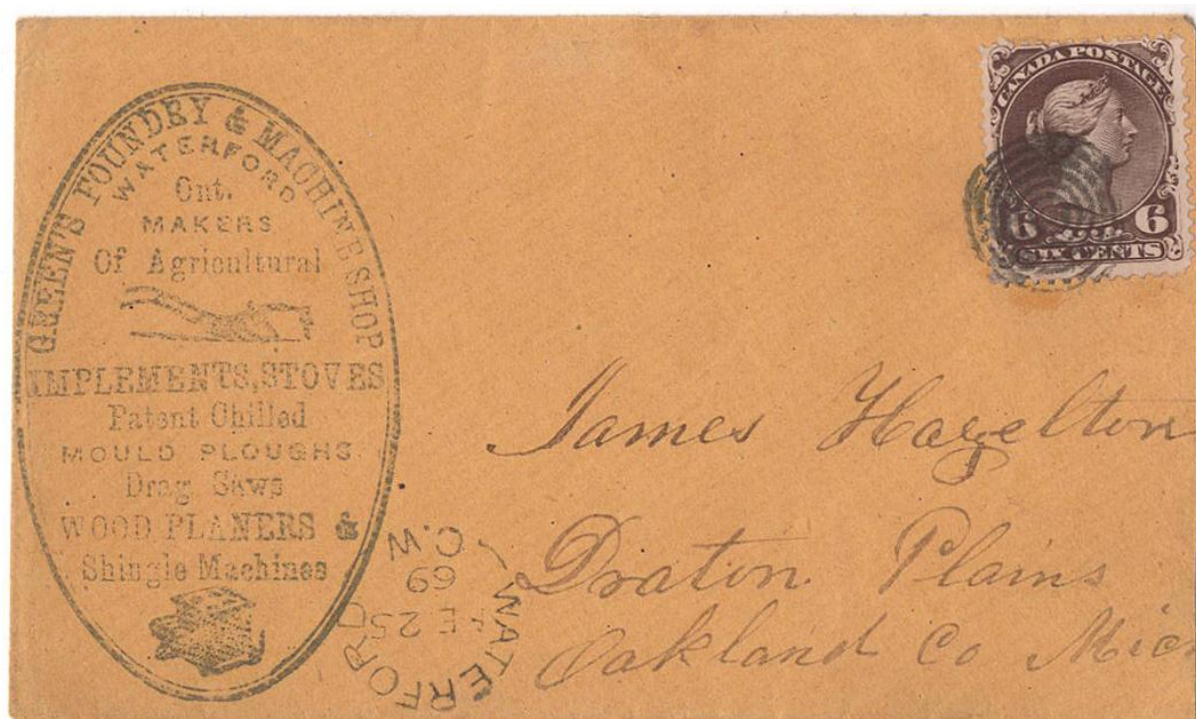 GREEN'S FOUNDRY & MACHINE SHOP
WATERFORD
Ont.
MAKERS
Of Agricultural
IMPLEMENTS, STOVES
Patent Chilled
MOULD PLOUGHS
Drag Saws
WOOD PLANERS &
Shingle Machines
CANADA POSTAGE
6 6
SIX CENTS
James Hazelton
Draton Plains
Oakland Co Mich
WATERFORD
FE 25
69
C.W